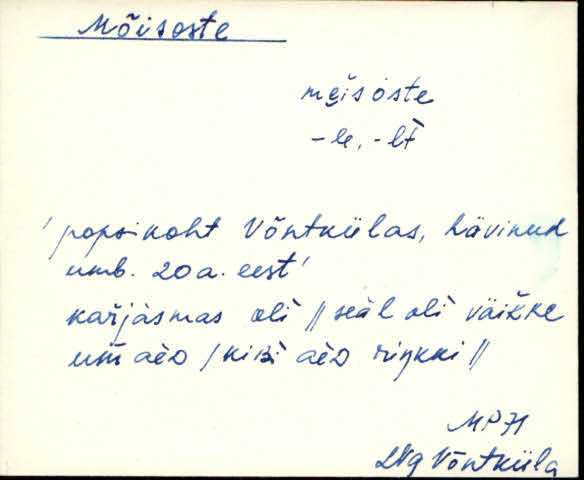 Mõisaste
mei̮sòste
-le, -lt̀
'popsikoht Võntkülas, hävinud
umb. 20 a. eest'
kaŕjàsmas oĺì // seäl oĺì väikke
um̀ aèᴅ / kiʙì aèᴅ riŋkki //
MP 71
LNg Võntküla